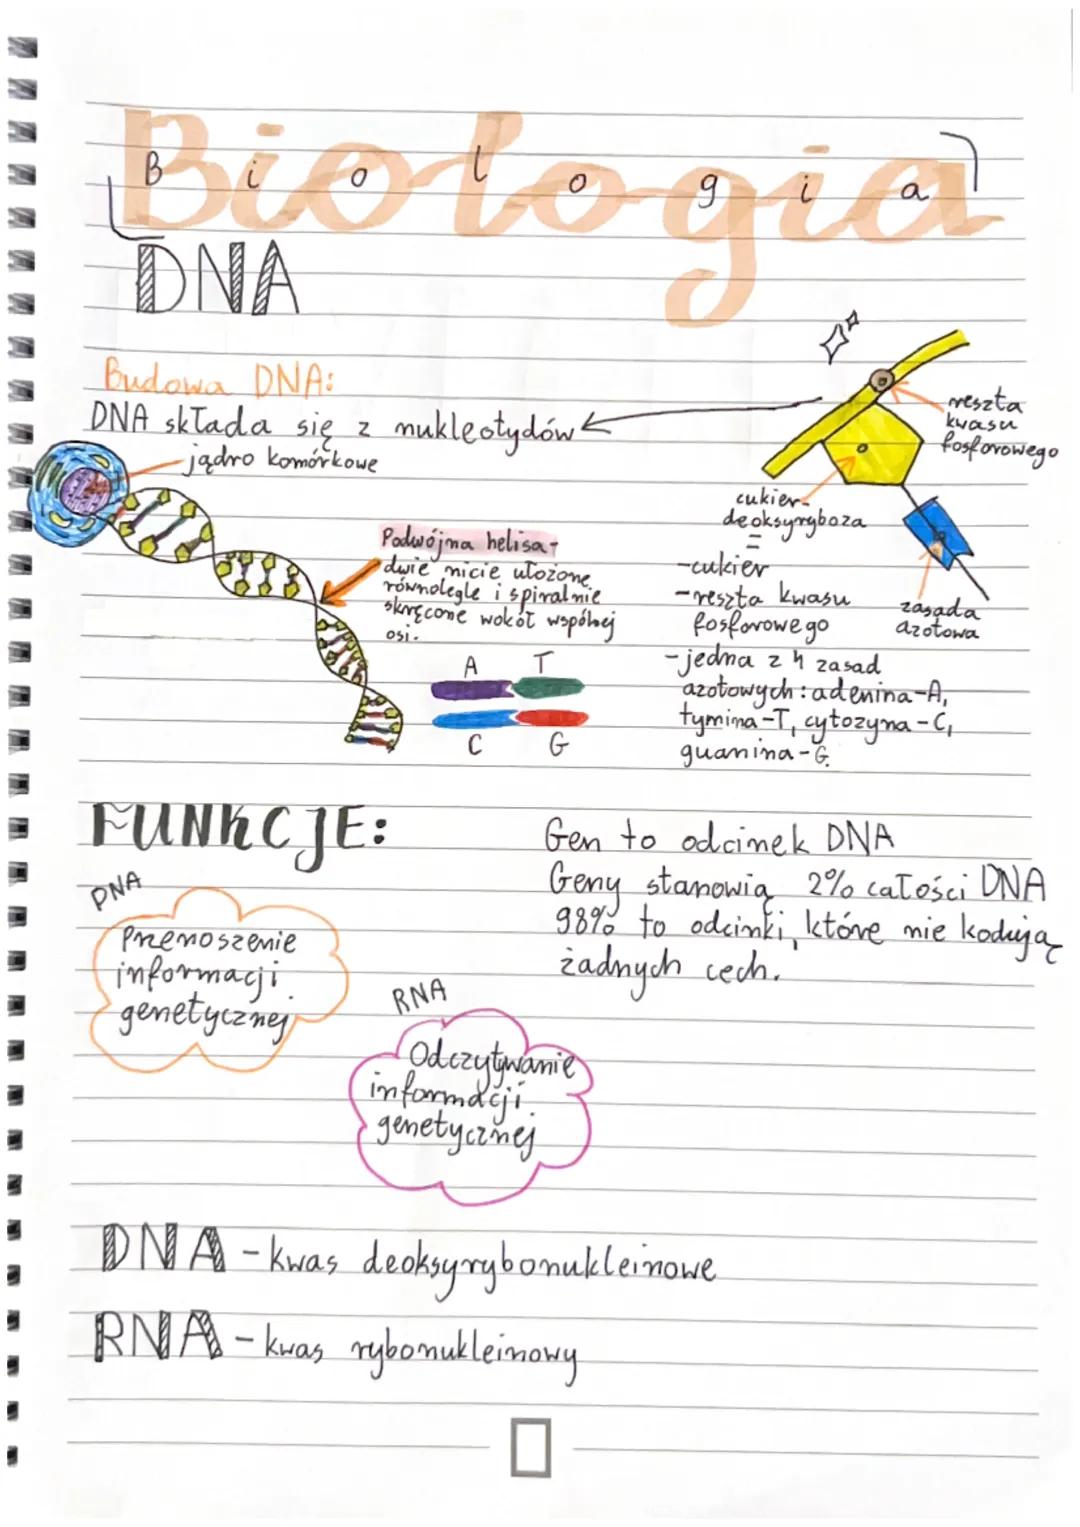 Biologia
B i o l o g i a
DNA
Budowa DNA:
DNA składa się z nukleotydów
jądro komórkowe
reszta
kwasu
fosforowego
cukier-
deoksyryboza
=
zasada
azotowa
Podwójna helisa-
dwie nicie ułożone
równolegle i spiralnie
skręcone wokół wspólnej
osi.
A T
C G
-cukier
-reszta kwasu
fosforowego
-jedna z 4 zasad
azotowych: adenina-A,
tymina-T, cytozyna-C,
guanina-G.
FUNKCJE:
DNA
Przenoszenie
informacji
genetycznej
RNA
Odczytywanie
informacji
genetycznej
Gen to odcinek DNA
Geny stanowią 2% całości DNA
98% to odcinki, które nie kodują
żadnych cech.
DNA-kwas deoksyrybonukleinowe
RNA-kwas rybonukleinowy